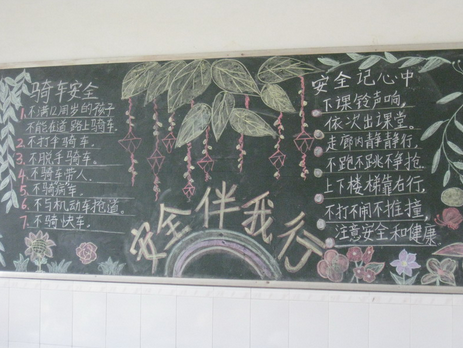 骑车安全
1.不满12周岁的孩子
不能在道路上骑车.
2.不打伞骑车.
3.不脱手骑车.
4.不骑车带人.
5.不骑病车.
6.不与机动车抢道.
7.不骑快车.
安全伴我行
安全记心中
下课铃声响,
依次出课堂.
走廊内静静行,
不跑不跳不争抢.
上下楼梯靠右行,
不打不闹不推撞,
注意安全和健康.